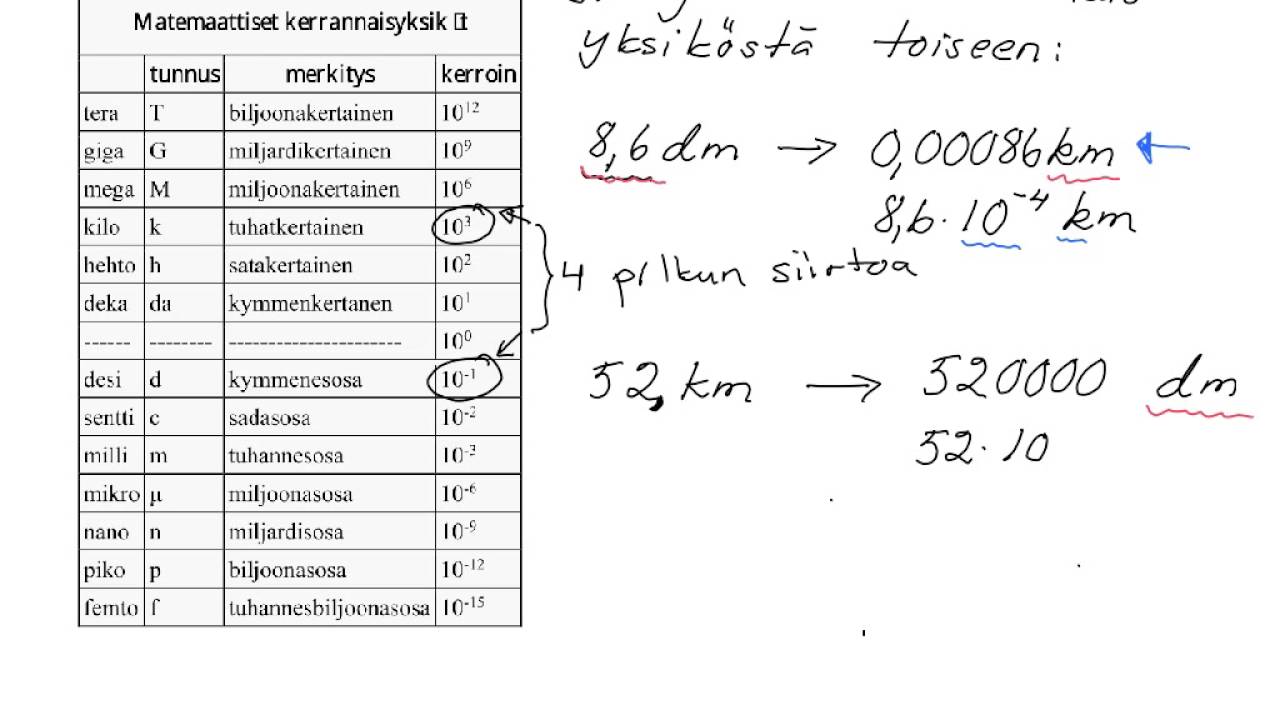 Matemaattiset kerrannaisyksik t
tunnus merkitys kerroin
tera T biljoonakertainen 10¹²
giga G miljardikertainen 10⁹
mega M miljoonakertainen 10⁶
kilo k tuhatkertainen 10³
hehto h satakertainen 10²
deka da kymmenkertanen 10¹
------ -------- ---------------------- 10⁰
desi d kymmenesosa 10⁻¹
sentti c sadasosa 10⁻²
milli m tuhannesosa 10⁻³
mikro μ miljoonasosa 10⁻⁶
nano n miljardisosa 10⁻⁹
piko p biljoonasosa 10⁻¹²
femto f tuhannesbiljoonasosa 10⁻¹⁵
yksiköstä toiseen:
8,6 dm → 0,00086 km ←
8,6 · 10⁻⁴ km
4 pilkun siirtoa
52, km → 520000 dm
52 · 10